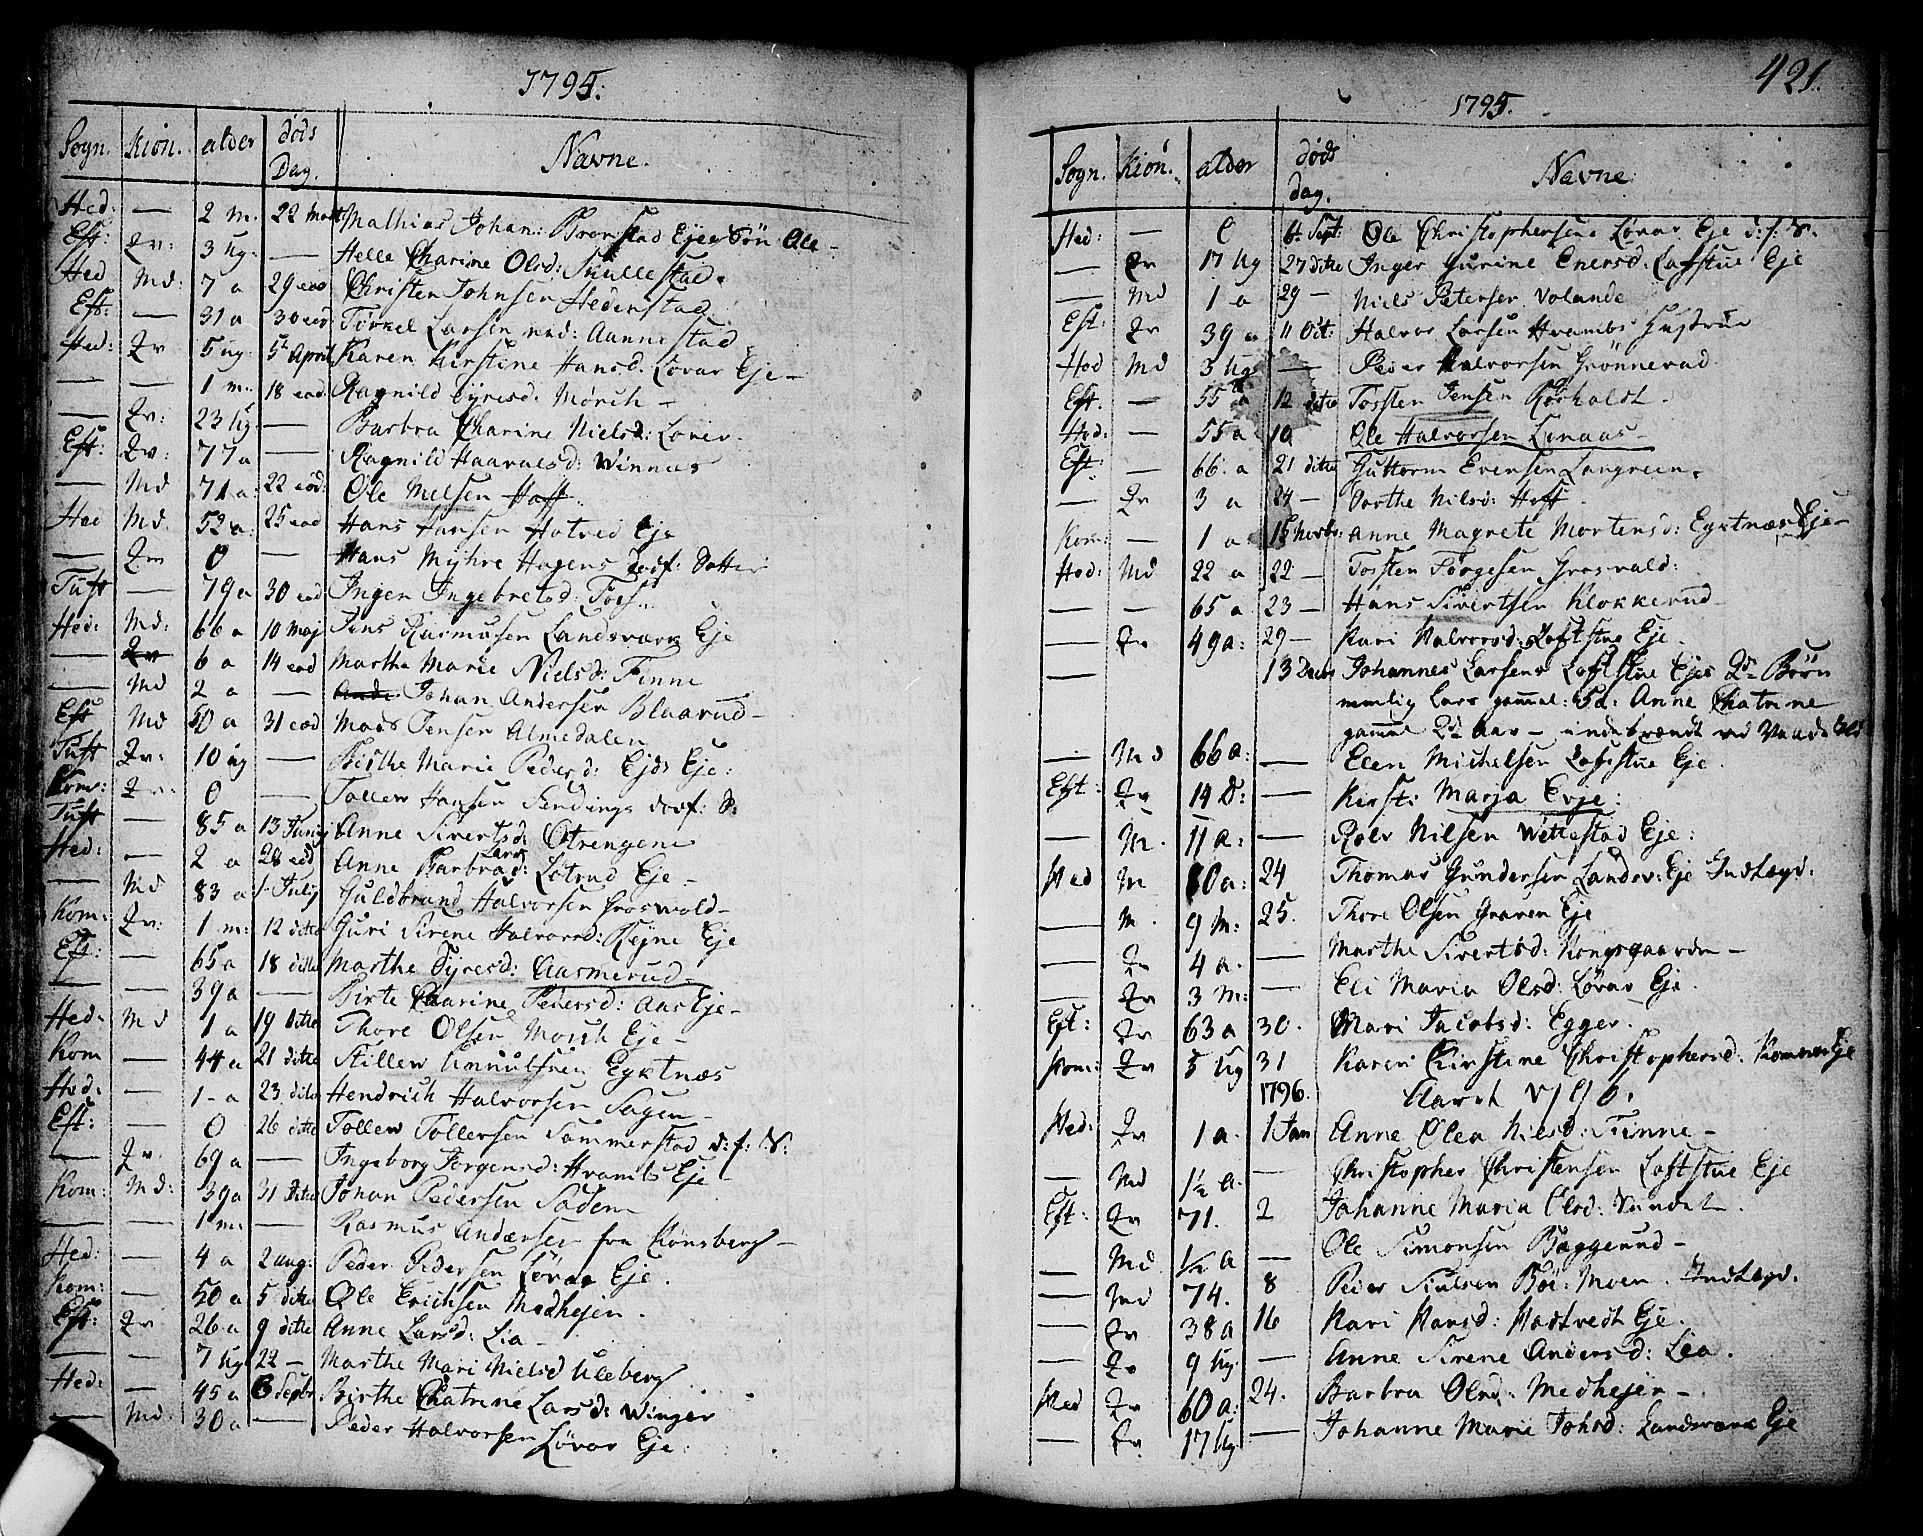 1795.
Sogn. Kiön. alder döds Dag. Navne.
Hed: — 2 m. 22 Mart Mathias Johan: Bronstad Eje Sön Ole —
Eft: Qv: 3 ug: — Helle Charine Olsd: Snullestad.
Hed Md: 7 a 29 eod Christen Johnsen Hedenstad
Eft: — 31 a 30 eod: Torkel Larsen ned: Aannestad
Hed: Qv 5 ug: 5t April Karen Kirstine Hansd. Lövar Eje —
— — 1 m: 18 eod Ragnild Gyresd: Mörch —
— Qv: 23 ug: — Barbra Charine Nielsd: Lover.
Eft: Qv: 77 a — Ragnild Haavalsd: Winnæs
— Md 71 a: 22 eod: Ole Nielsen Hoff.
Hed Md. 52 a: 25 eod Hans Hansen Hotved Eje
— Qv 0 — Hans Myhre Hagens dödf: Datter
Tuft — 79 a 30 eod Inger Ingebretsd: Foss.
Hed: Md: 66 a 10 Maj Jens Rasmusen Landsværk Eje
— Qv 6 a 14 eod Marthe Marie Nielsd: Finne
— Md 2 a — Johan Andersen Blaarud —
Eft Md 50 a 31 eod Mads Jensen Almedalen
Tuft Qv: 10 ug — Birthe Marie Pedersd: Ejds Eje:
Kom: Qv: 0 — Tollew Hansen Sendings dödf: D:
Tuft — 85 a 13 Junij Anne Sivertsd: Östrengene
Hed: — 2 a 28 eod Anne Barbra Larsd: Lotrud Eje —
— Md 83 a 1. Julij Guldbrand Halvorsen Groswold —
Kom: Qv: 1 m: 12 ditto Guri Sirene Halvorsd: Rejne Eje
Eft: — 65 a 18 ditto Marthe Gyresd: Aasmerud —
— — 39 a — Birte Chaarine Pedersd: Aas Eje —
Hed: Md 1 a 19 ditto Thore Olsen Morch Eje —
Kom — 44 a 21 ditto Stillew Gunulfsen Egtnæs
Hed: — 1 - a 23 dito Hendrich Halvorsen Sagen —
Eft: — 0 26 ditto Tollew Tollersen Sommerstad d: f: S:
— Qv. 69 a — Ingeborg Jorgensd: Hvambs Eje —
Kom: Md: 39 a 31 Ditto Johan Pedersen Saden
— — 1 m: — Rasmus Andersen fra Konsberg —
Hed: — 4 a 2 aug: Peder Pedersen Lövas Eje.
Kom: — 50 a 5 ditto Ole Erichsen Medhejen.
Eft: Qv 26 a 9 ditto Anne Larsd: Lia —
— — 7 ug 22 — Marthe Mari Nielsd Uleberg
Hed: — 45 a 6 Septbr Birthe Chatrine Larsd: Winger
— Md: 30 a — Peder Halvorsen Lövar Eje:
421.
1795.
Sogn. Kiön. alder döds dag. Navne
Hed: — 0 6t Sept: Ole Christophersens Lövar Eje d: f: S.
— Qv 17 ug 27 ditto Inger Gurine Enersd: Loftstue Eje
— Md 1 a 29 — Niels Petersen Volande
Eft: Qv 39 a 11 Oct: Halvor Larsen Hvambs Hustrue
Hed Md 3 ug — Peder Halvorsen Grönnerud
Eft. — 55 a 12 ditto Torsten Jensen Röeholdt.
Hed: — 55 a 10 Ole Halvorsen Lenaas —
Eft: — 66. a 21 ditto Guttorm Evensen Langreen.
— Qv 3 a 24 — Dorthe Nilsd: Hoff
Kom: — 1 a 15 Novbr: Anne Magrete Mortensd: Egtnæs Eje —
Hed: Md 22 a 22 — Torsten Torgesen Groswald:
— — 65 a 23 — Hans Sivertsen Klokkerud —
— Qv 49 a: 29 — Kari Halvorsd: Loftstue Eje.
— 13 Decbr Johannes Larsens Loftstue Ejes 2de Börn
nemlig Lars gammel: 5 a: Anne Chatrine
gamme 2de Aar — indebrændt ved Vaade Ild
— Md 66 a: — Elen Michelsen Loftstue Eje.
Eft: Qv 14 D: — Kirsti Marja Evje:
— M. 11 a: — Rolv Nilsen Wettestad Eje:
Hed M 80 a: 24 Thomas Gundersen Landsv: Eje Indlægd:
— M. 9 M: 25. Thore Olsen Graven Eje
— Qv 4 a. — Marthe Sivertsd: Kongsgaarden —
— Qv 3 m: — Eli Maria Olsd: Lövar Eje.
Eft: Qv 63 a 30. Mari Jacobsd: Egger.
Kom: Qv 5 ug 31 Karen Kirstine Christophersd: Komnes Eje
1796. Aaret 1796.
Hed: Qv 1 a. 1 Jan Anne Olea Nilsd: Finne —
— Md 1½ a. — Christopher Christensen Loftstue Eje
Eft: Qv 71. 2 Johanne Maria Olsd: Sundet.
— Md ½ a — Ole Simonsen Baggerud —
— Md 74. 8 Peder Siulsen Böe: Moen. Indlægd.
— Qv 38 a 16 Kari Hansd: Hostvedt Eje.
— Qv 9 ug. — Anne Sirene Andersd: Lea.
Hed Qv 60 a: 24. Barbra Olsd: Medhejen —
— Qv 17 ug — Johanne Marie Johsd: Landsværk Eje